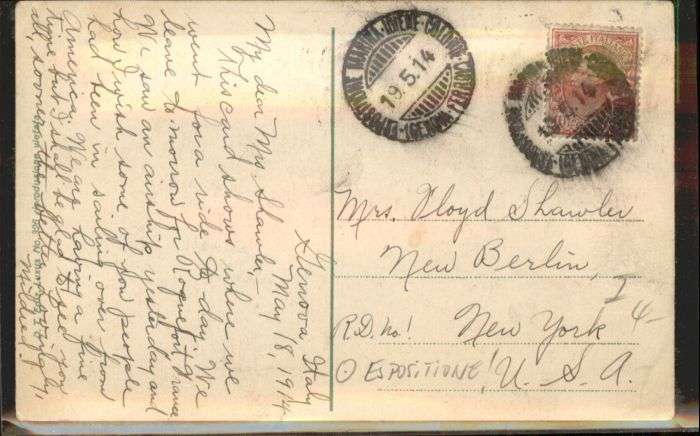 Genova Italy
May 18, 1914
My dear Mrs. Shawler,-
This card shows where we
went for a ride to-day. We
leave to morrow for Roquefort, France
We saw an airship yesterday and
how I wish some of you people
had been in sailing over from
America. We are having a fine
time but I shall be glad to see you
all, soon
19.5.14
Mrs. Lloyd Shawler
New Berlin,
R.D. No! New York
I 4-
ESPOSITIONE! U. S. A.